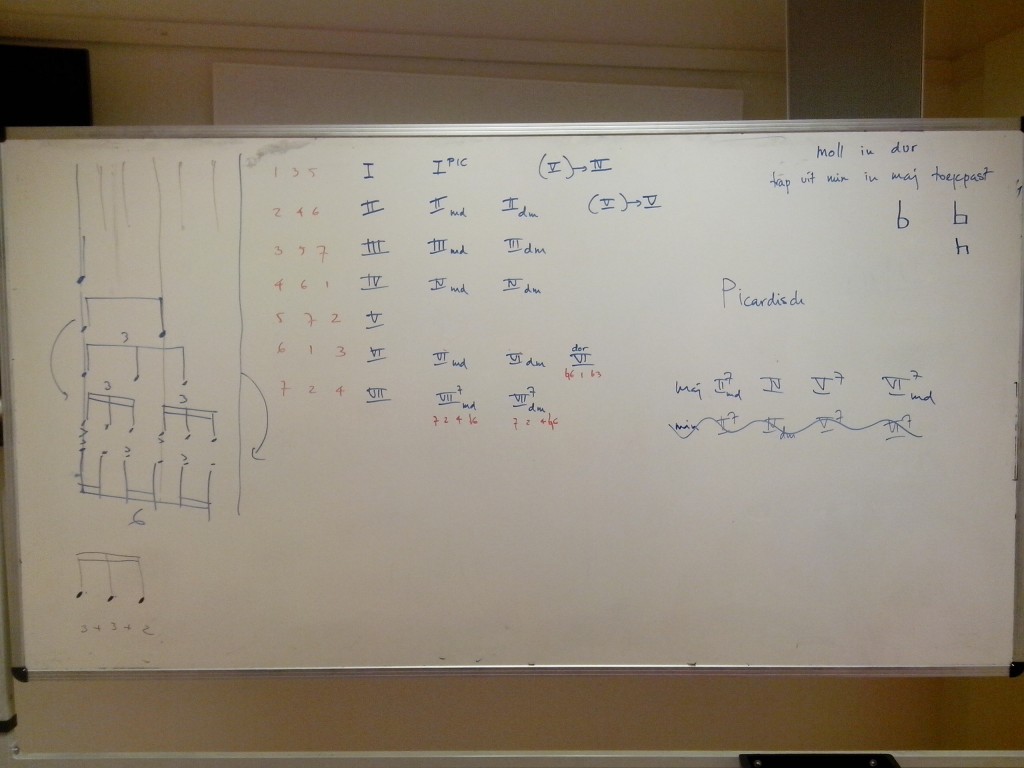 1 3 5 I I PIC (V)→IV
2 4 6 II II md II dm (V)→V
3 5 7 III III md III dm
4 6 1 IV IV md IV dm
5 7 2 V
6 1 3 VI VI md VI dm dor VI
b6 1 b3
7 2 4 VII VII7 md VII7 dm
7 2 4 b6 7 2 4 b6
moll in dur
trap uit min in maj toegepast
b b
h
Picardisch
maj II7 md IV V7 VI7 md
min II7 IV dm V7 VI7
3
3 3
3 3
6
3 + 3 + 2